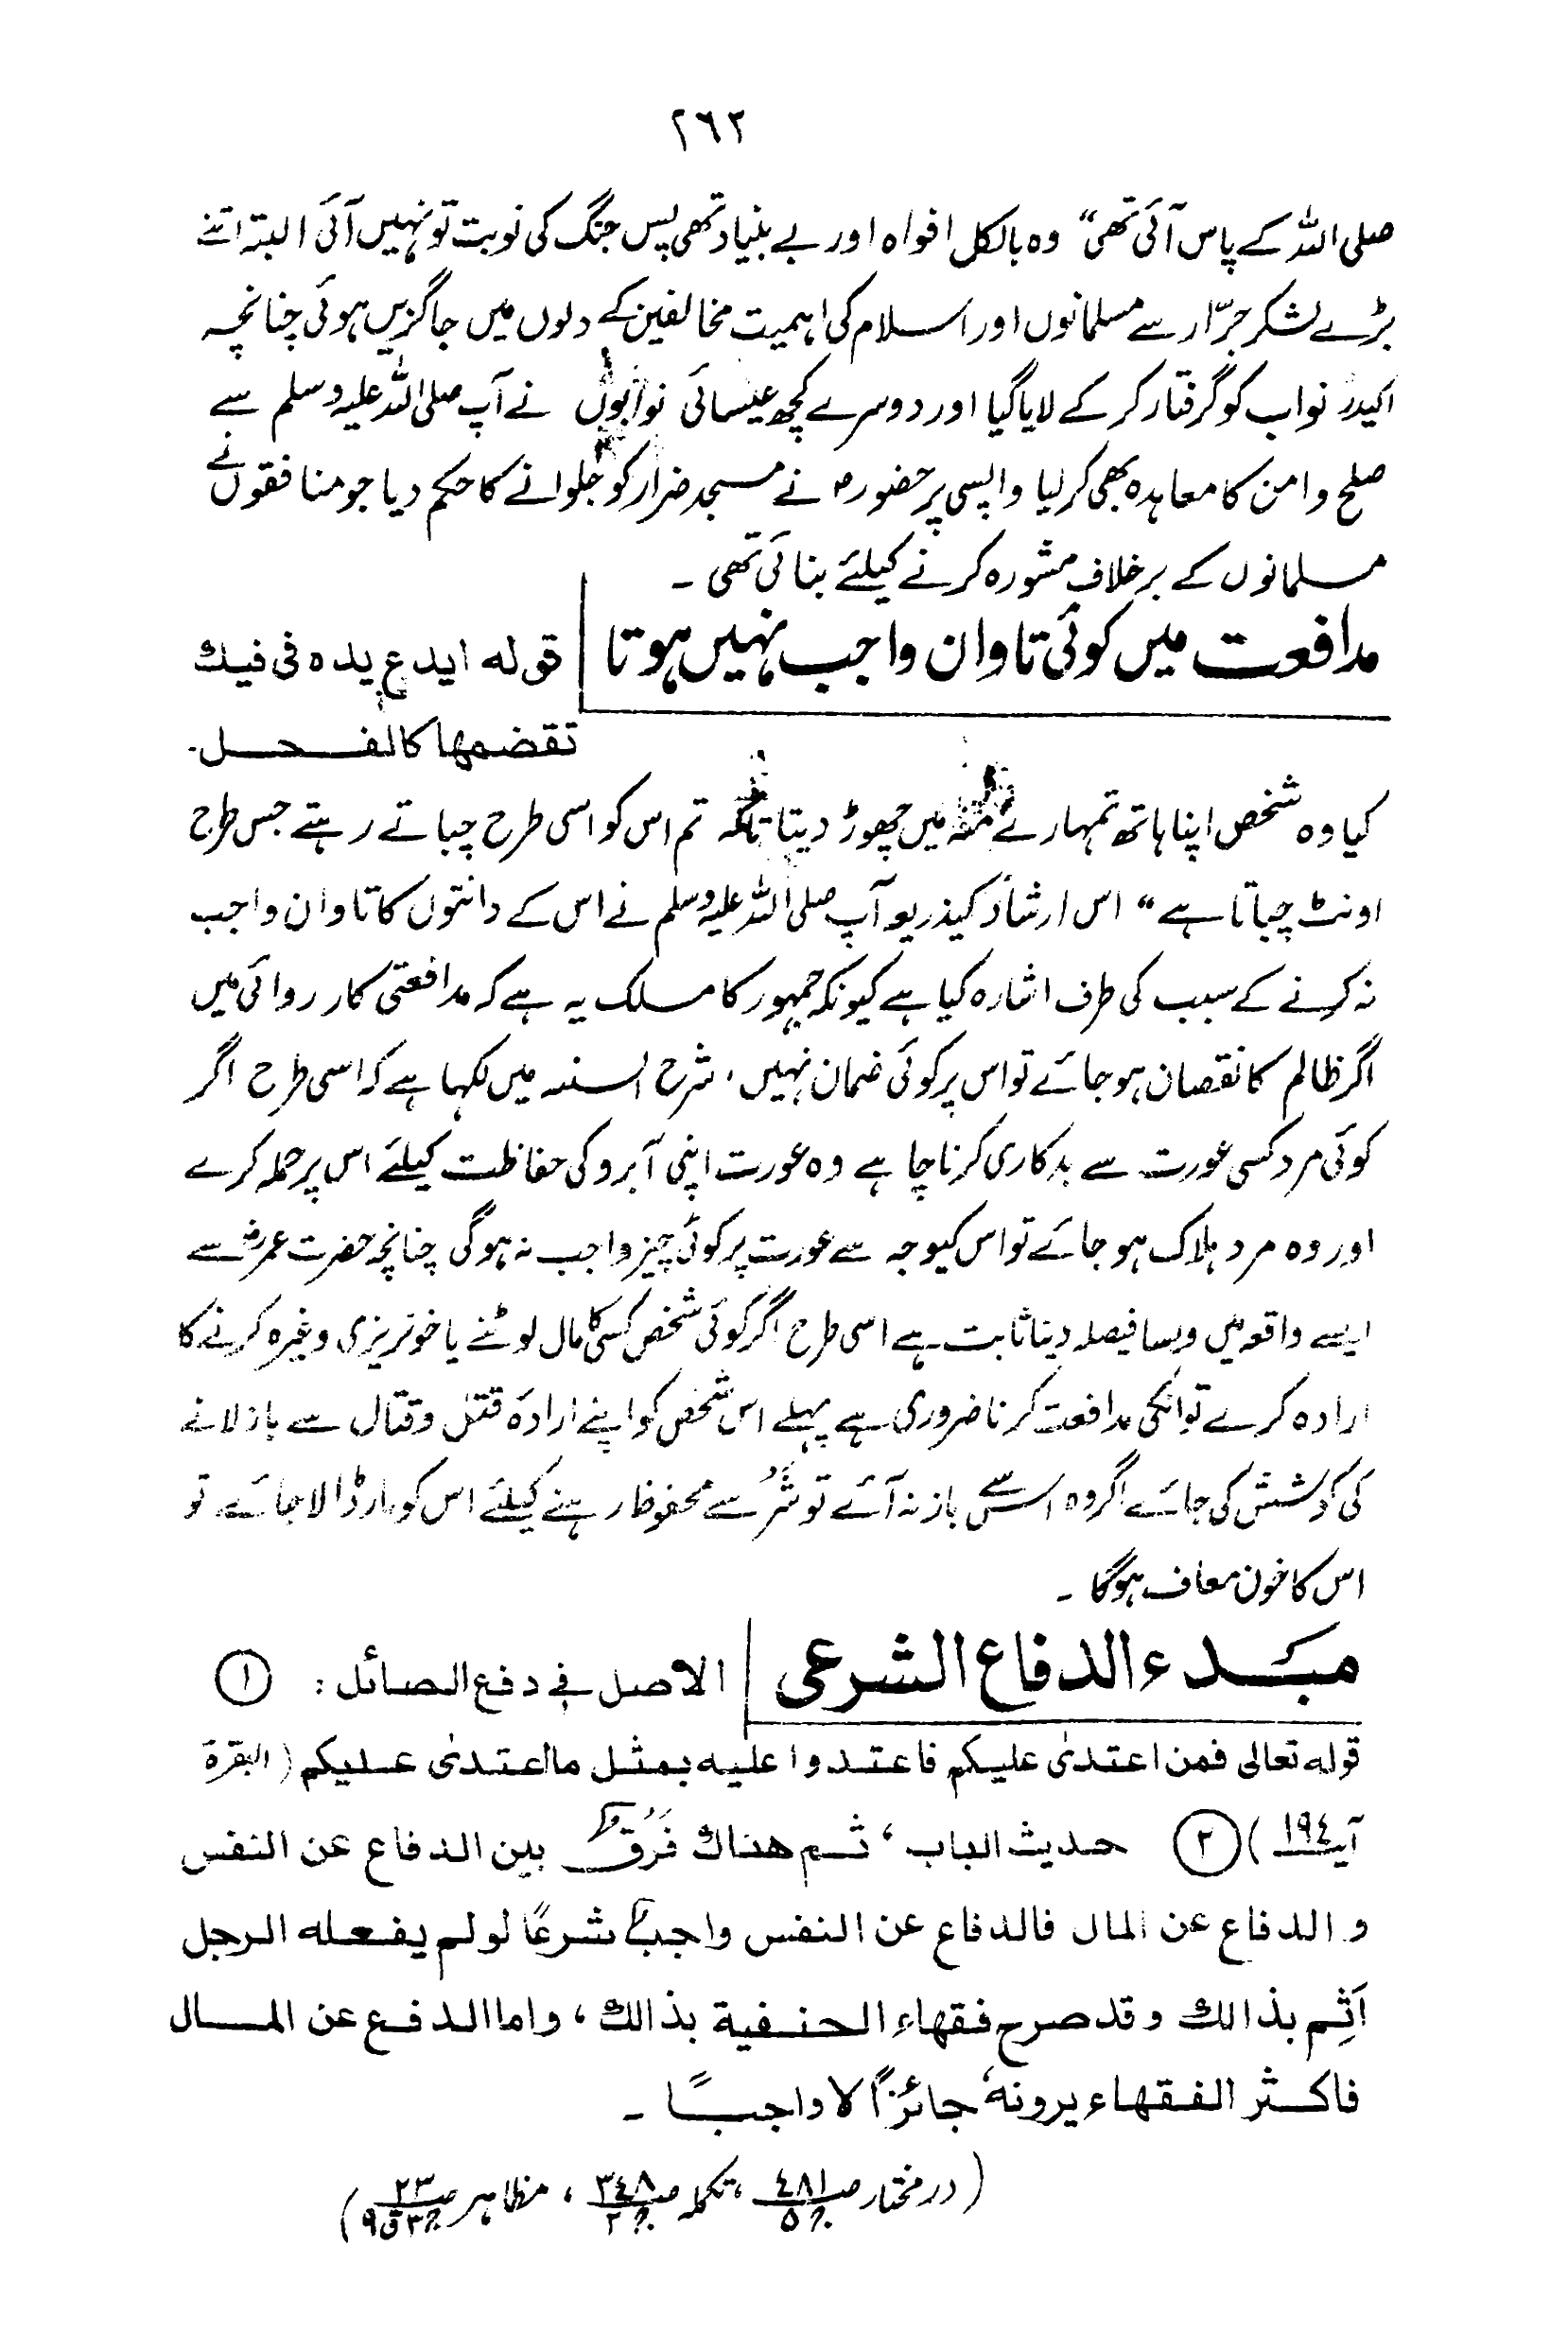 ٢٦٢
صلی اللہ کے پاس آئی تھی“ وہ بالکل افواہ اور بے بنیاد تھی پس جنگ کی نوبت تو نہیں آئی البتہ اتنے
بڑے لشکر جرّار سے مسلمانوں اور اسلام کی اہمیت مخالفین کے دلوں میں جاگزیں ہوئی چنانچہ
اکیدر نواب کو گرفتار کر کے لایا گیا اور دوسرے کچھ عیسائی نوابوں نے آپ صلی اللہ علیہ وسلم سے
صلح وامن کا معاہدہ بھی کر لیا واپسی پر حضورؐ نے مسجد ضرار کو جلوانے کا حکم دیا جو منافقوں نے
مسلمانوں کے برخلاف مشورہ کرنے کیلئے بنائی تھی ۔
مدافعت میں کوئی تاوان واجب نہیں ہوتا | قوله ایدع یده فی فیك
تقضمها كالفحل۔
کیا وہ شخص اپنا ہاتھ تمہارے منہ میں چھوڑ دیتا تاکہ تم اس کو اسی طرح چباتے رہتے جس طرح
اونٹ چباتا ہے“ اس ارشاد کیذریعہ آپ صلی اللہ علیہ وسلم نے اس کے دانتوں کا تاوان واجب
نہ کرنے کے سبب کی طرف اشارہ کیا ہے کیونکہ جمہور کا مسلک یہ ہے کہ مدافعتی کارروائی میں
اگر ظالم کا نقصان ہو جائے تو اس پر کوئی ضمان نہیں ، شرح السنہ میں لکہا ہے کہ اسی طرح اگر
کوئی مرد کسی عورت سے بدکاری کرنا چاہے وہ عورت اپنی آبرو کی حفاظت کیلئے اس پر حملہ کرے
اور وہ مرد ہلاک ہو جائے تو اس کیوجہ سے عورت پر کوئی چیز واجب نہ ہوگی چنانچہ حضرت عمرؓ سے
ایسے واقعہ میں ویسا فیصلہ دینا ثابت ہے اسی طرح اگر کوئی شخص کسی کا مال لوٹنے یا خونریزی وغیرہ کرنے کا
ارادہ کرے تو انکی مدافعت کرنا ضروری ہے پہلے اس شخص کو اپنے ارادۂ قتل وقتال سے باز لانے
کی کوشش کی جائے اگر وہ اس سے باز نہ آئے تو شرّ سے محفوظ رہنے کیلئے اس کو مار ڈالا جائے تو
اس کا خون معاف ہوگا ۔
مبدء الدفاع الشرعی | الاصل في دفع الصائل : ①
قوله تعالى فمن اعتدىٰ عليكم فاعتدوا عليه بمثل مااعتدىٰ عليكم (البقرة
آیت ١٩٤) ② حديث الباب ، ثم هناك فَرقٌ بين الدفاع عن النفس
والدفاع عن المال فالدفاع عن النفس واجبٌ شرعًا لولم يفعله الرجل
اَثِم بذالك وقد صرح فقهاء الحنفية بذالك ، واما الدفع عن المال
فاكثر الفقهاء يرونهٗ جائزًا لا واجبًا ۔
(درمختار صـ٤٨١ جـ٥ ، تکملہ صـ٣٤٨ جـ٢ ، مظاہر صـ٢٣ جـ٣ ق٩)